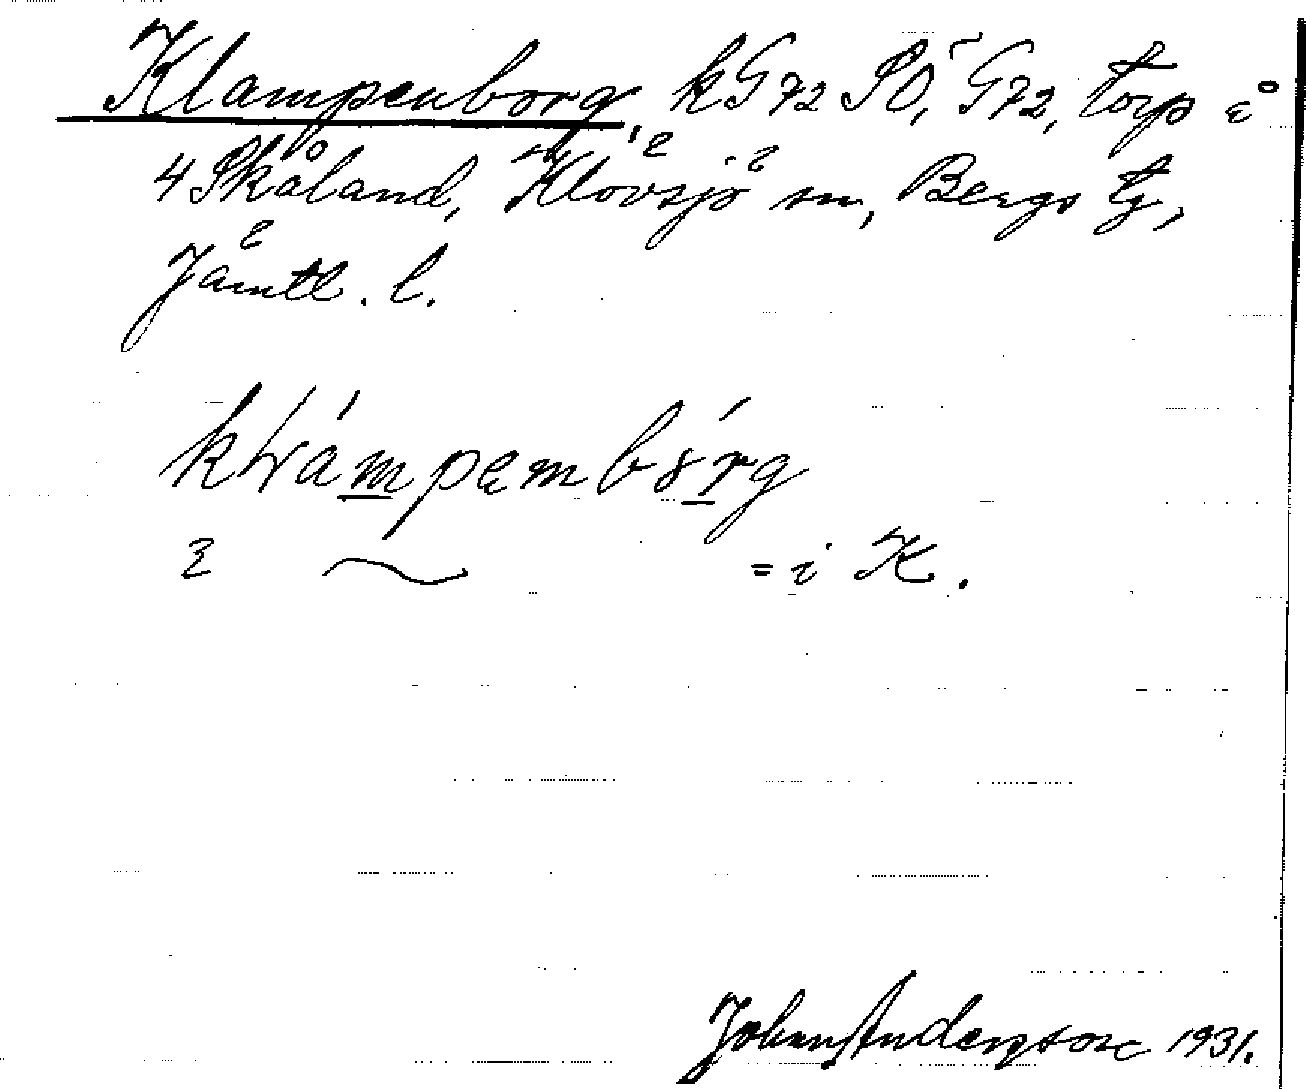 Klampenborg, kG72 SO, G72, torp i
4 Skåland, Klövsjö sn, Bergs tg,
Jämtl. l.
= i K.
Johan Anderson 1931.